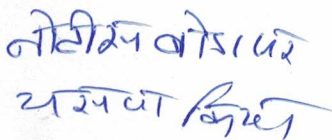 नोटीस बोर्ड पर
चस्पा किया